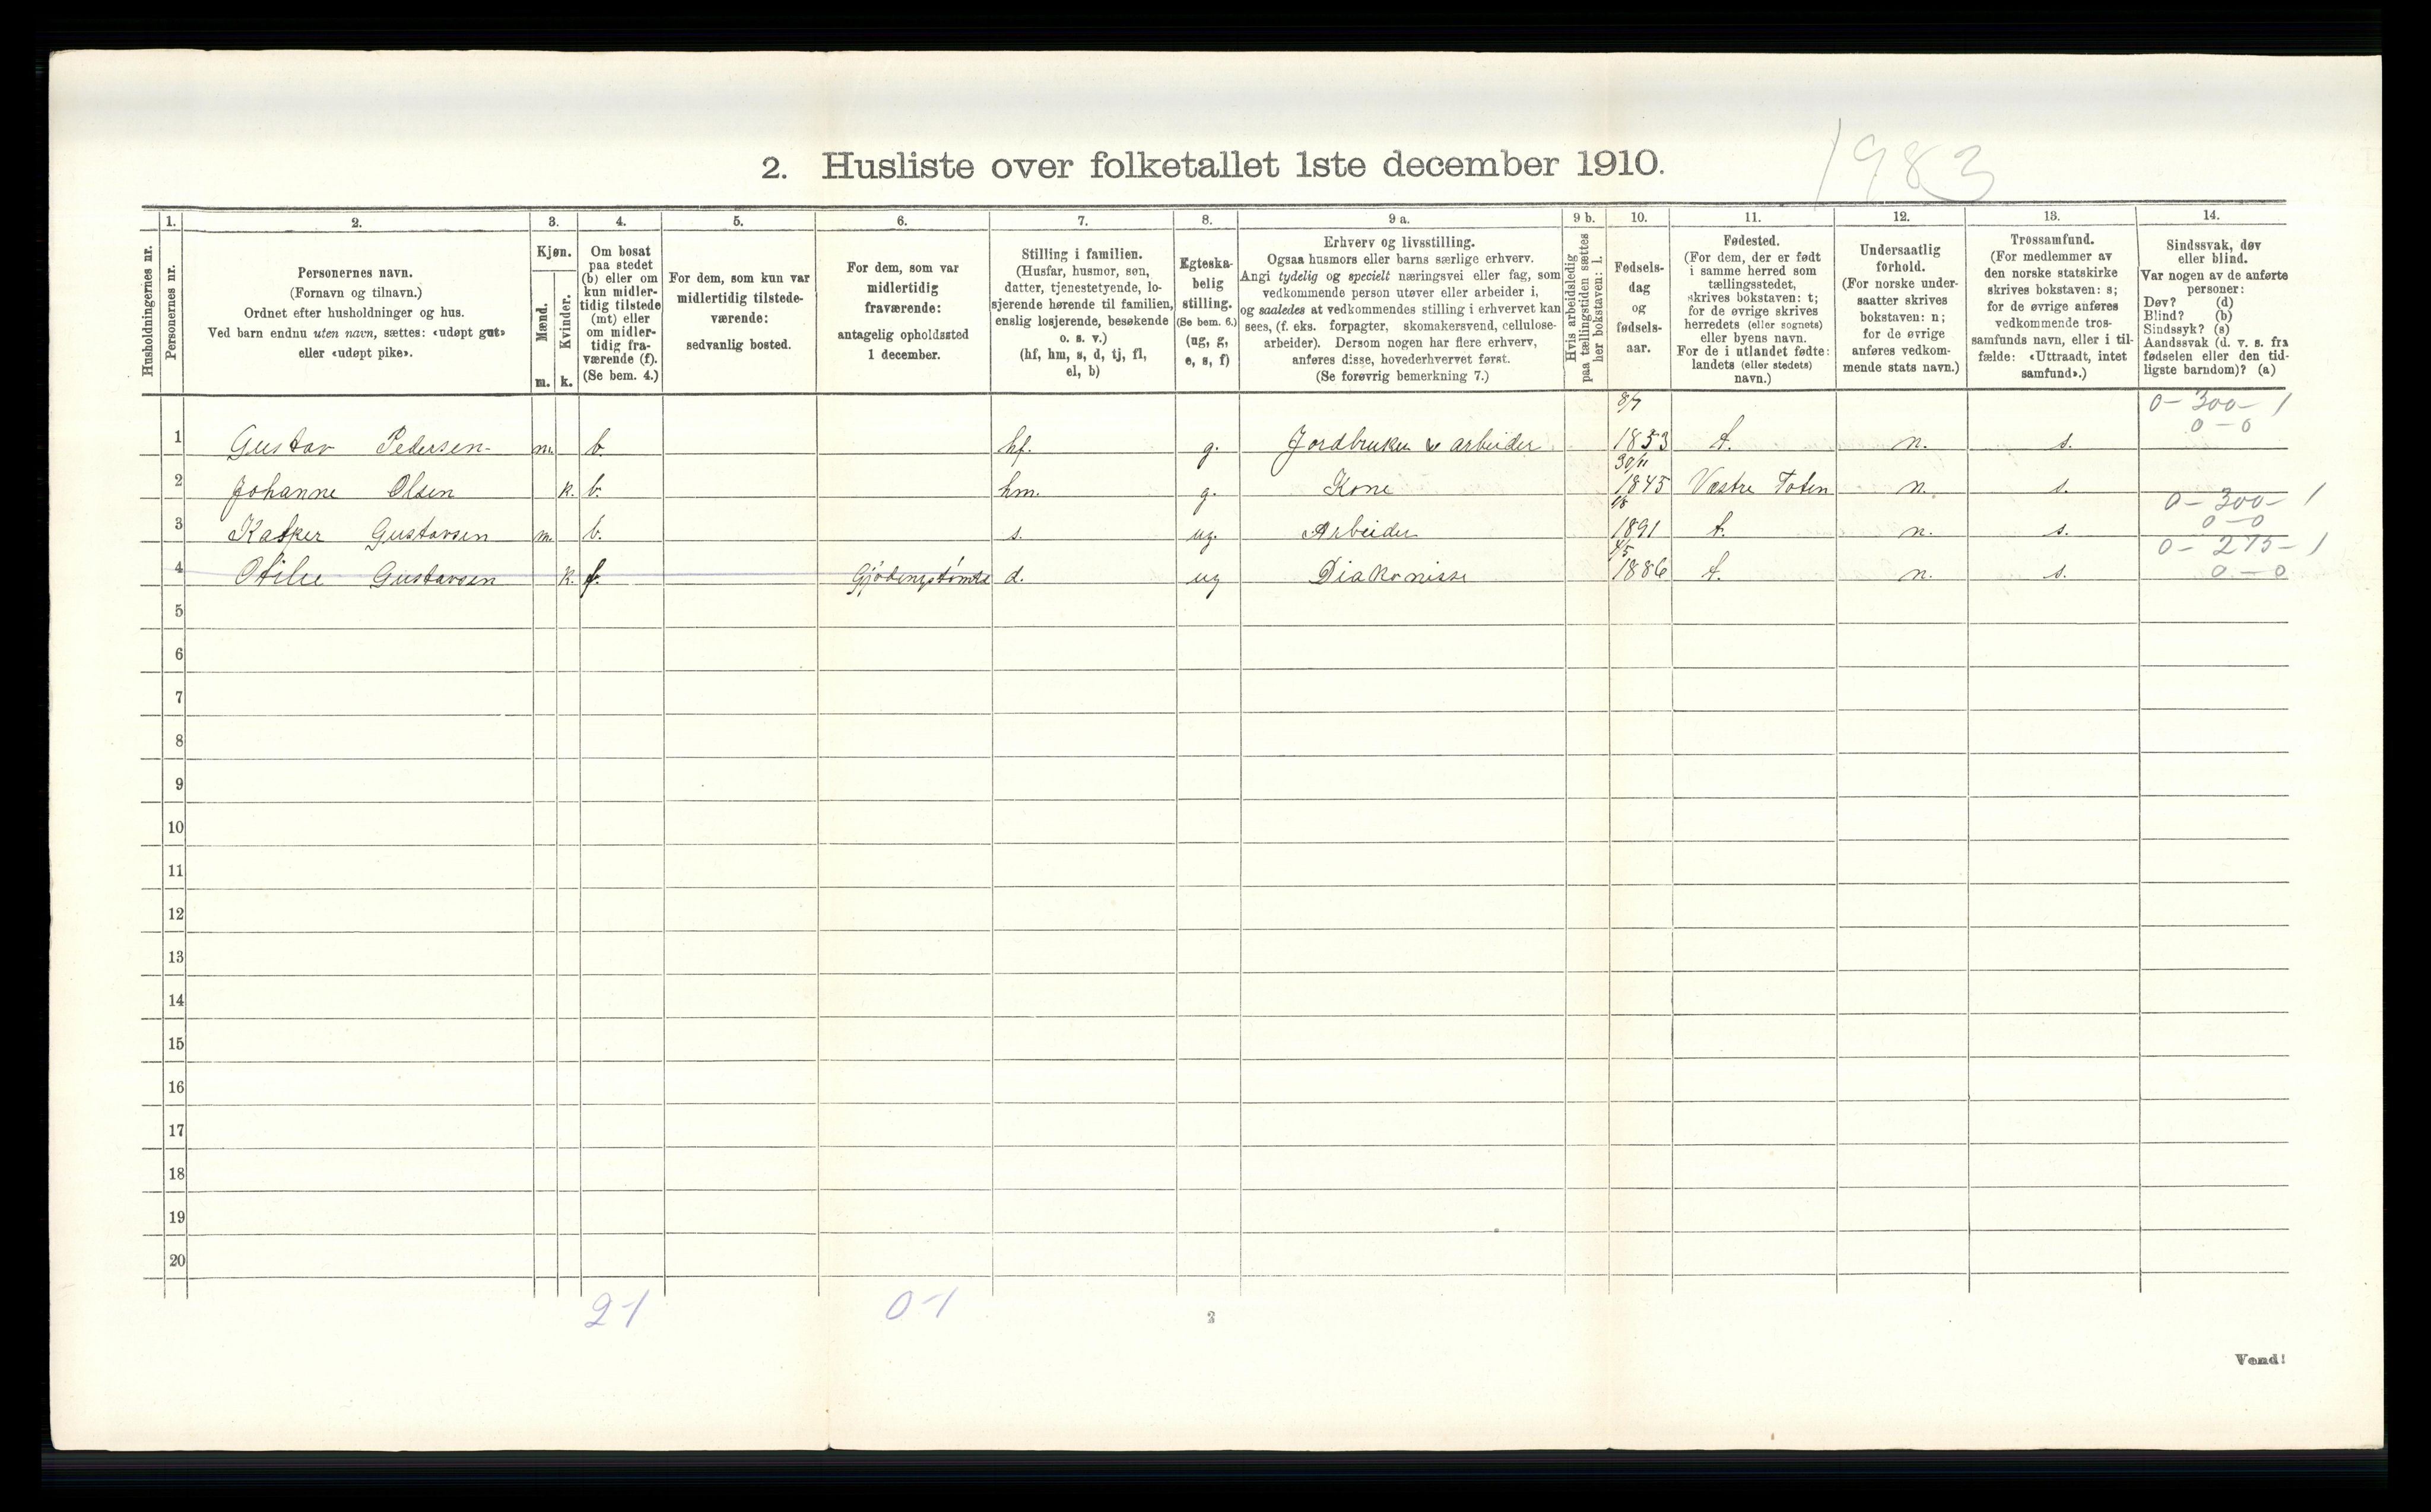 1983
2. Husliste over folketallet 1ste december 1910.
Husholdningernes nr.
1.
Personernes nr.
2.
Personernes navn.
(Fornavn og tilnavn.)
Ordnet efter husholdninger og hus.
Ved barn endnu uten navn, sættes: «udøpt gut»
eller «udøpt pike».
3.
Kjøn.
Mænd.
m.
Kvinder.
k.
4.
Om bosat
paa stedet
(b) eller om
kun midler-
tidig tilstede
(mt) eller
om midler-
tidig fra-
værende (f).
(Se bem. 4.)
5.
For dem, som kun var
midlertidig tilstede-
værende:
sedvanlig bosted.
6.
For dem, som var
midlertidig
fraværende:
antagelig opholdssted
1 december.
7.
Stilling i familien.
(Husfar, husmor, søn,
datter, tjenestetyende, lo-
sjerende hørende til familien,
enslig losjerende, besøkende
o. s. v.)
(hf, hm, s, d, tj, fl,
el, b)
8.
Egteska-
belig
stilling.
(Se bem. 6.)
(ug, g,
e, s, f)
9 a.
Erhverv og livsstilling.
Ogsaa husmors eller barns særlige erhverv.
Angi tydelig og specielt næringsvei eller fag, som
vedkommende person utøver eller arbeider i,
og saaledes at vedkommendes stilling i erhvervet kan
sees, (f. eks. forpagter, skomakersvend, cellulose-
arbeider). Dersom nogen har flere erhverv,
anføres disse, hovederhvervet først.
(Se forøvrig bemerkning 7.)
9 b.
Hvis arbeidsledig
paa tællingstiden sættes
her bokstaven: l.
10.
Fødsels-
dag
og
fødsels-
aar.
11.
Fødested.
(For dem, der er født
i samme herred som
tællingsstedet,
skrives bokstaven: t;
for de øvrige skrives
herredets (eller sognets)
eller byens navn.
For de i utlandet fødte:
landets (eller stedets)
navn.)
12.
Undersaatlig
forhold.
(For norske under-
saatter skrives
bokstaven: n;
for de øvrige
anføres vedkom-
mende stats navn.)
13.
Trossamfund.
(For medlemmer av
den norske statskirke
skrives bokstaven: s;
for de øvrige anføres
vedkommende tros-
samfunds navn, eller i til-
fælde: «Uttraadt, intet
samfund».)
14.
Sindssvak, døv
eller blind.
Var nogen av de anførte
personer:
Døv? (d)
Blind? (b)
Sindssyk? (s)
Aandssvak (d. v. s. fra
fødselen eller den tid-
ligste barndom)? (a)
8/7 0 - 300 - 1
1 Gustav Pedersen m. b. hf. g. Jordbruker & arbeider 1853 t. n. s. 0 - 0
30/11
2 Johanne Olsen k. b. hm. g. Kone 1845 Vestre Toten n. s.
0 - 300 - 1
3 Kasper Gustavsen m. b. s. ug. Arbeider 1891 t. n. s. 0 - 0
4/5 0 - 275 - 1
4 Otilie Gustavsen k. f. d. ug Diakonisse 1886 t. n. s. 0 - 0
5
6
7
8
9
10
11
12
13
14
15
16
17
18
19
20
2-1 0-1
Vend!